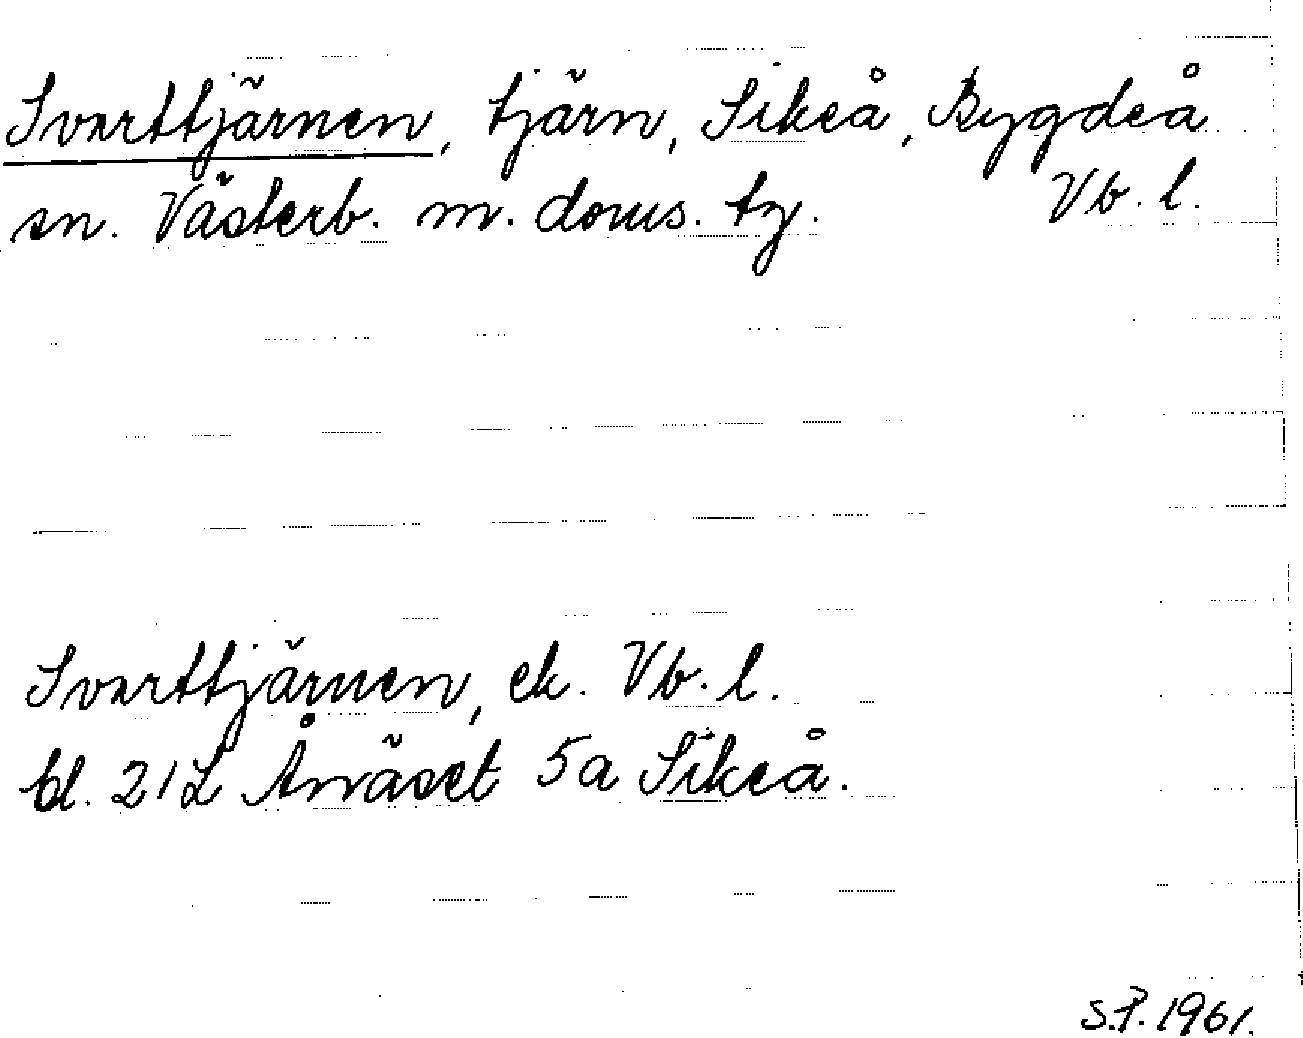 Svarttjärnen, tjärn, Sikeå, Bygdeå
sn. Västerb. m. doms. tg. Vb. l.
Svarttjärnen, ek. Vb. l.
bl. 21L Ånäset 5a Sikeå.
S.P. 1961.